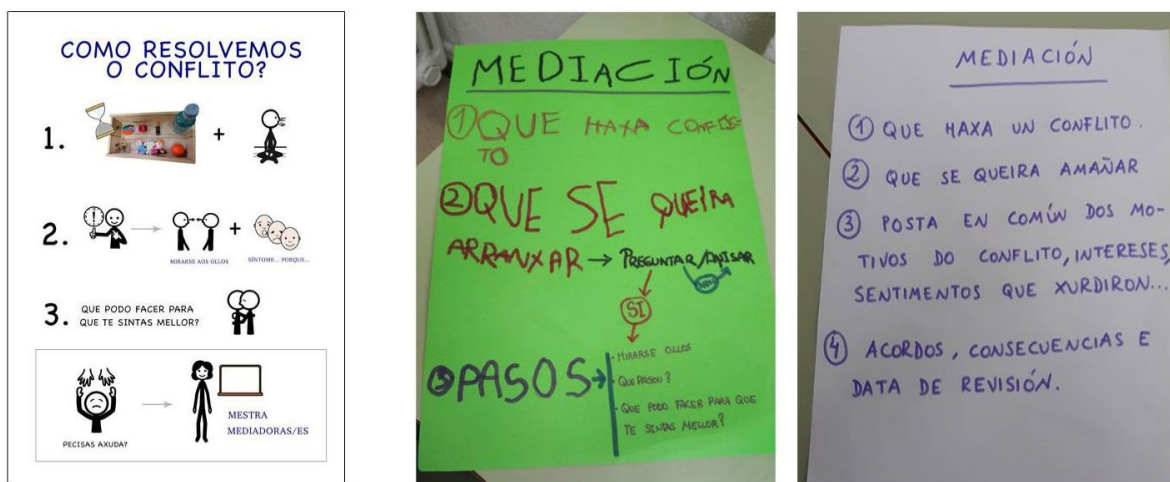 COMO RESOLVEMOS
O CONFLITO?
1.
+
2.
+
MIRARSE AOS OLLOS
SÍNTOME... PORQUE...
3. QUE PODO FACER PARA
QUE TE SINTAS MELLOR?
PECISAS AXUDA?
MESTRA
MEDIADORAS/ES
MEDIACIÓN
① QUE HAXA CONFLI-
TO
② QUE SE QUEIRA
ARRANXAR → PREGUNTAR/AVISAR
SI
③ PASOS →
· MIRARSE OLLOS
· QUE PASOU?
· QUE PODO FACER PARA QUE
TE SINTAS MELLOR?
MEDIACIÓN
① QUE HAXA UN CONFLITO.
② QUE SE QUEIRA AMAÑAR
③ POSTA EN COMÚN DOS MO-
TIVOS DO CONFLITO, INTERESES,
SENTIMENTOS QUE XURDIRON...
④ ACORDOS, CONSECUENCIAS E
DATA DE REVISIÓN.